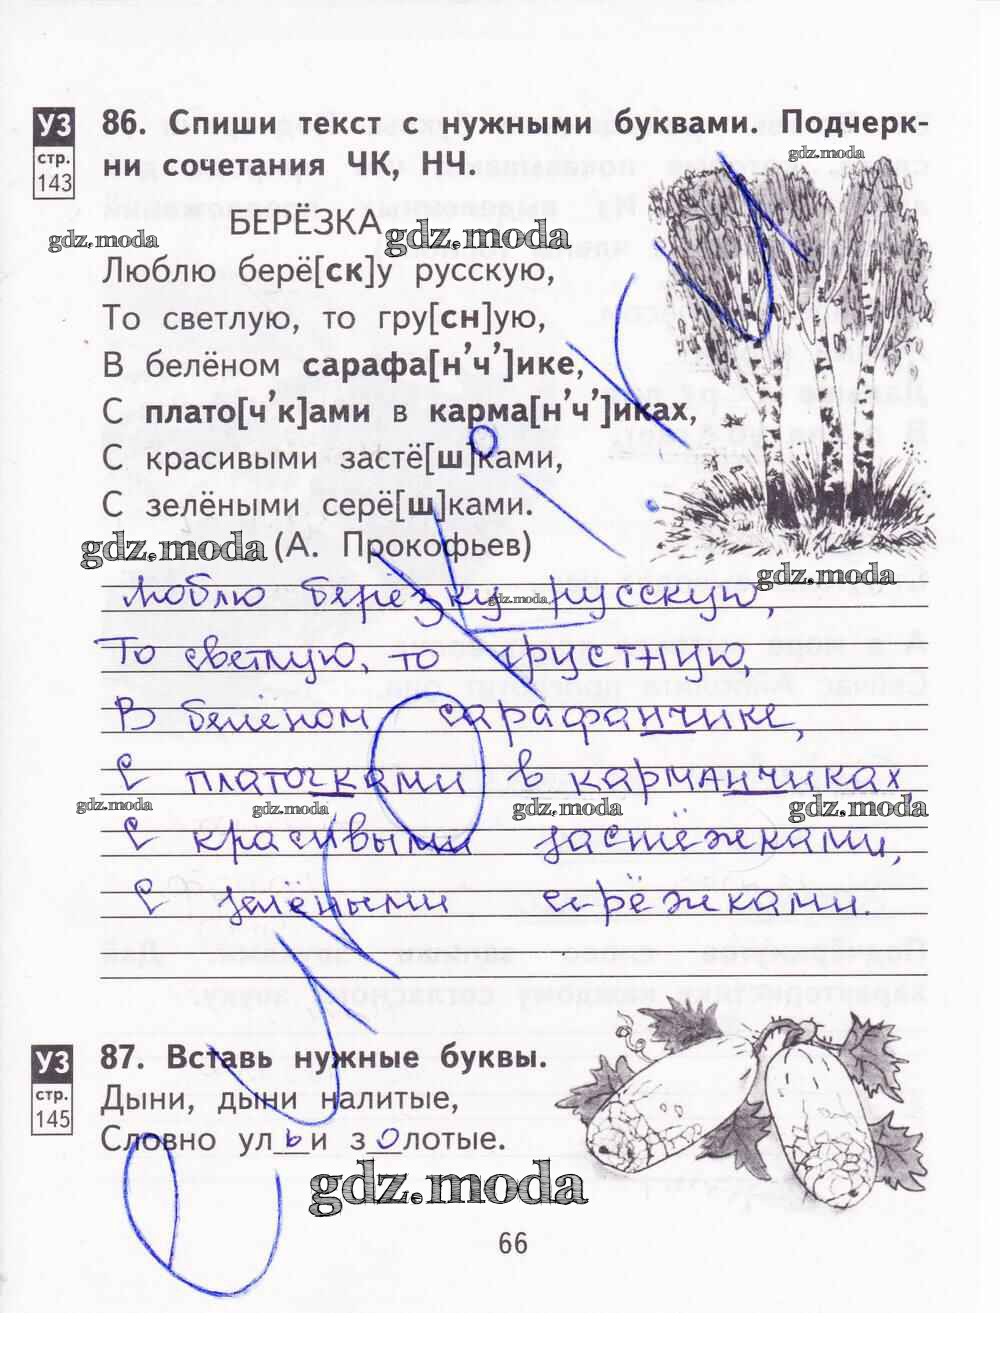 УЗ
стр.
143
86. Спиши текст с нужными буквами. Подчерк-
ни сочетания ЧК, НЧ.
gdz.moda
БЕРЁЗКА
gdz.moda
gdz.moda
Люблю берё[ск]у русскую,
То светлую, то гру[сн]ую,
В белёном сарафа[н’ч’]ике,
С плато[ч’к]ами в карма[н’ч’]иках,
С красивыми застё[ш]ками,
С зелёными серё[ш]ками.
gdz.moda
(А. Прокофьев)
gdz.moda
Люблю берёзку русскую,
gdz.moda
То светлую, то грустную,
В белёном сарафанчике,
С платочками в карманчиках,
gdz.moda
gdz.moda
gdz.moda
gdz.moda
С красивыми застёжками,
С зелёными серёжками.
УЗ
стр.
145
87. Вставь нужные буквы.
Дыни, дыни налитые,
Словно ульи золотые.
gdz.moda
66